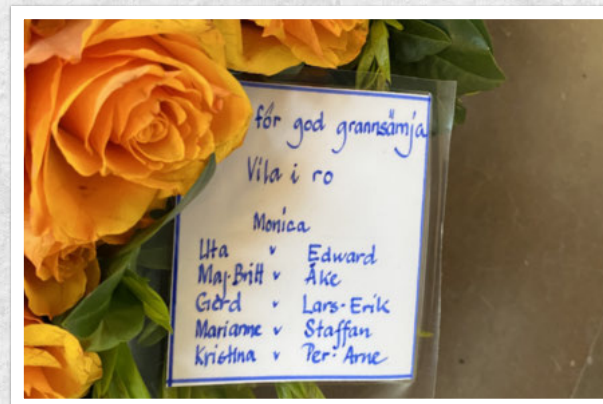 för god grannsämja
Vila i ro
Monica
Uta v Edward
Maj-Britt v Åke
Gerd v Lars-Erik
Marianne v Staffan
Kristina v Per-Arne